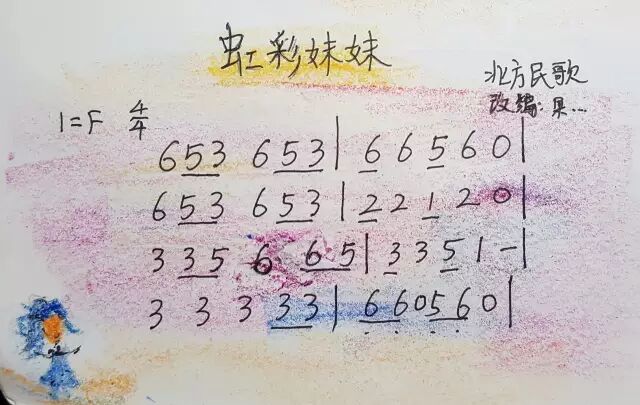 虹彩妹妹
北方民歌
改编:果...
1=F 4/4
653 653 | 6 6 5 6 0 |
653 653 | 2 2 1 2 0 |
3 335 6 65 | 3 3 5 1 - |
3 3 3 33 | 660560 |